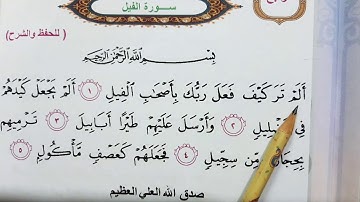 سورة الفيل
( للحفظ والشرح)
بِسْمِ اللَّهِ الرَّحْمَٰنِ الرَّحِيمِ
أَلَمْ تَرَ كَيْفَ فَعَلَ رَبُّكَ بِأَصْحَابِ الْفِيلِ ١ أَلَمْ يَجْعَلْ كَيْدَهُمْ
فِي تَضْلِيلٍ ٢ وَأَرْسَلَ عَلَيْهِمْ طَيْرًا أَبَابِيلَ ٣ تَرْمِيهِم
بِحِجَارَةٍ مِّن سِجِّيلٍ ٤ فَجَعَلَهُمْ كَعَصْفٍ مَّأْكُولٍ ٥
صدق الله العلي العظيم